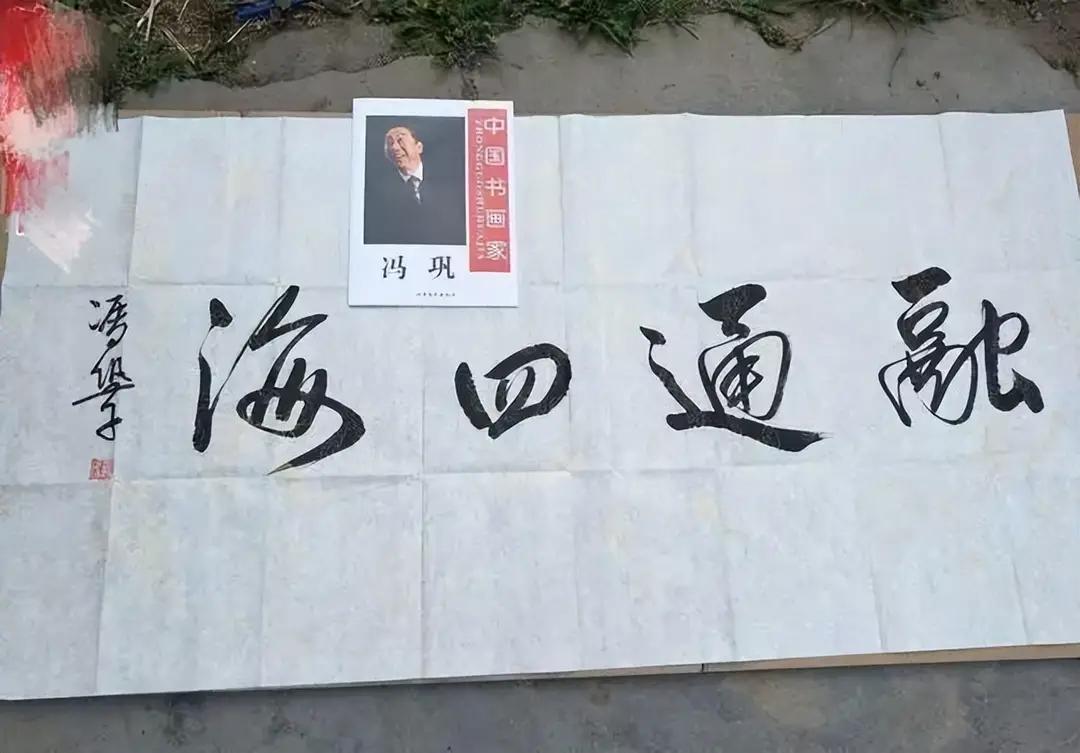 中国书画家
ZHONGGUOSHUHUAJIA
冯 巩
融通四海
馮